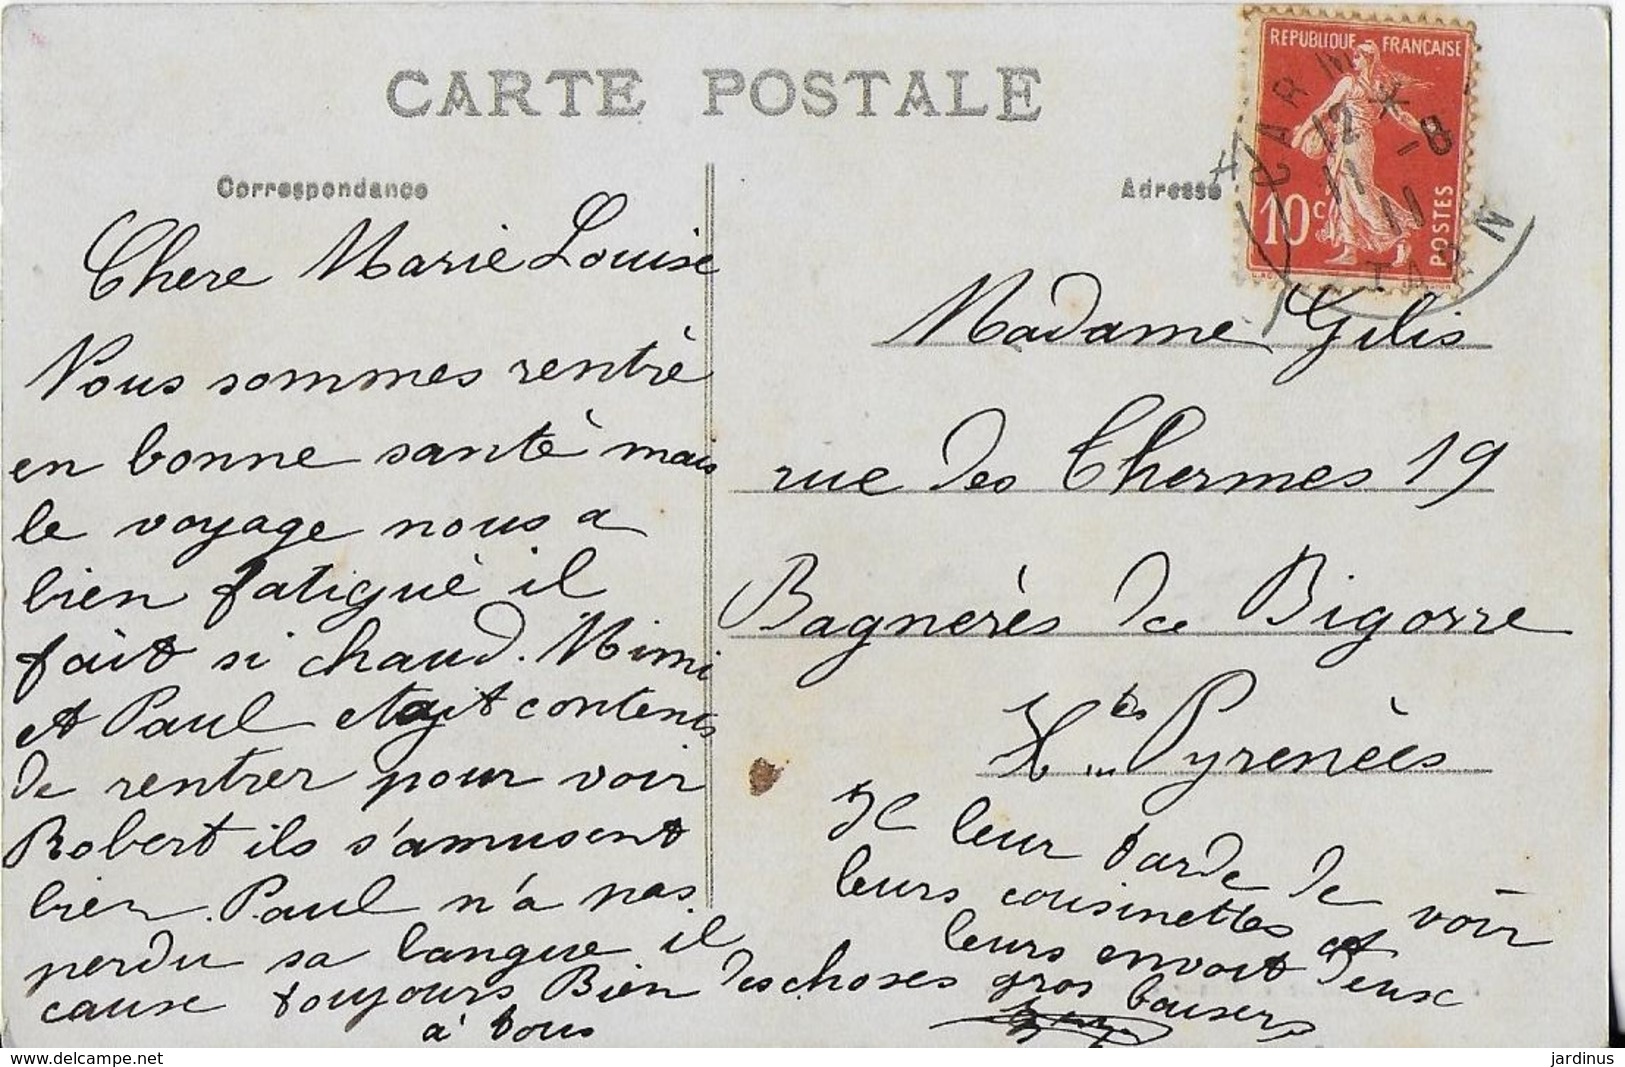 CARTE POSTALE
REPUBLIQUE FRANÇAISE
10c
POSTES
CARM
12 *
11 -8
11
TARN
Correspondance
Adresse
Chere Marie Louise
Nous sommes rentrè
en bonne santè mais
le voyage nous a
bien fatiguè il
fàit si chaud. Mimi
et Paul etait contents
de rentrer pour voir
Robert ils s'amusent
bien. Paul n'a pas
perdu sa langue il
cause toujours Bien des choses
à tous
Madame Gilis
rue des Thermes 19
Bagnerès de Bigorre
Htes Pyrenèes
Il leur tarde de voir
leurs cousinettes et
leurs envoit deux
gros baisers
jardinus